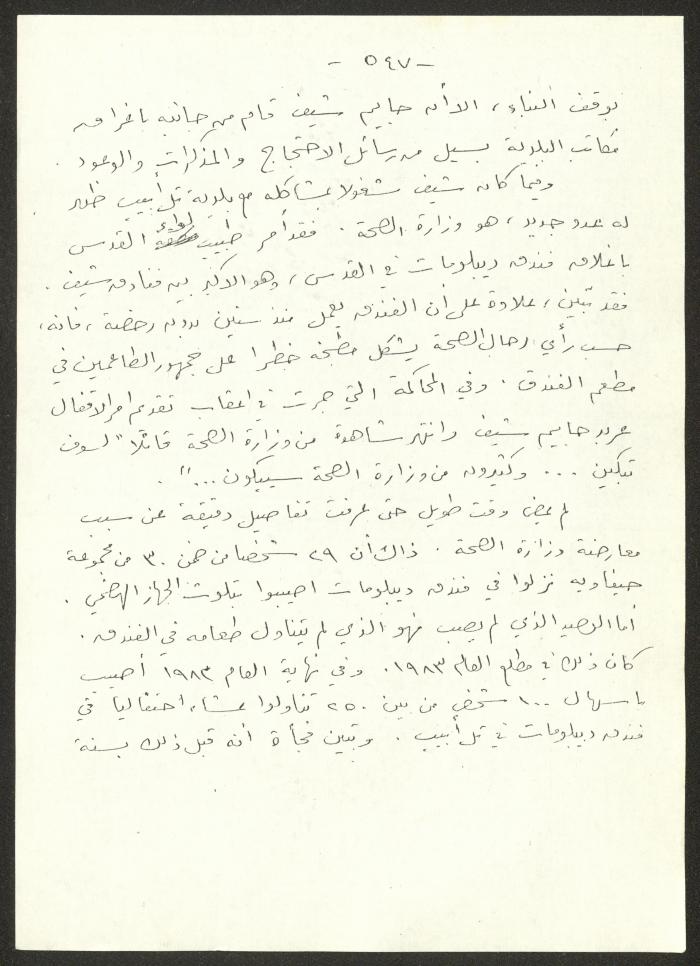 - ٥٤٧ -
بوقف البناء، الا أنه حاييم شيف قام من جانبه باغراق
مكاتب البلدية بسيل من رسائل الاحتجاج والمذكرات والوعود .
وفيما كان شيف مشغولا بمشاكله مع بلدية تل أبيب ظهر
له عدو جديد، هو وزارة الصحة . فقد أمر طبيب لواء القدس
باغلاق فندق ديبلومات في القدس، وهو الاكبر بين فنادق شيف .
فقد تبين، علاوة على أن الفندق يعمل منذ سنين بدون رخصة، فانه،
حسب رأي رجال الصحة يشكل مطبخه خطرا على جمهور الطاعمين في
مطعم الفندق . وفي المحاكمة التي جرت في اعقاب تقديم امر الاقفال
عربد حاييم شيف وانتهر شاهدة من وزارة الصحة قائلا " لسوف
تبكين ... وكثيرون من وزارة الصحة سيبكون ..." .
لم يمض وقت طويل حتى عرفت تفاصيل دقيقة عن سبب
معارضة وزارة الصحة . ذلك أن ٢٩ شخصا من ضمن ٣٠ من مجموعة
حيفاويه نزلوا في فندق ديبلومات اصيبوا بتلوث الجهاز الهضمي .
أما الوحيد الذي لم يصب فهو الذي لم يتناول طعامه في الفندق .
كان ذلك في مطلع العام ١٩٨٣. وفي نهاية العام ١٩٨٣ أصيب
باسهال ١٠٠ شخص من بين ٢٥٠ تناولوا عشاء احتفاليا في
فندق ديبلومات في تل أبيب . وتبين فجأة أنه قبل ذلك بسنة